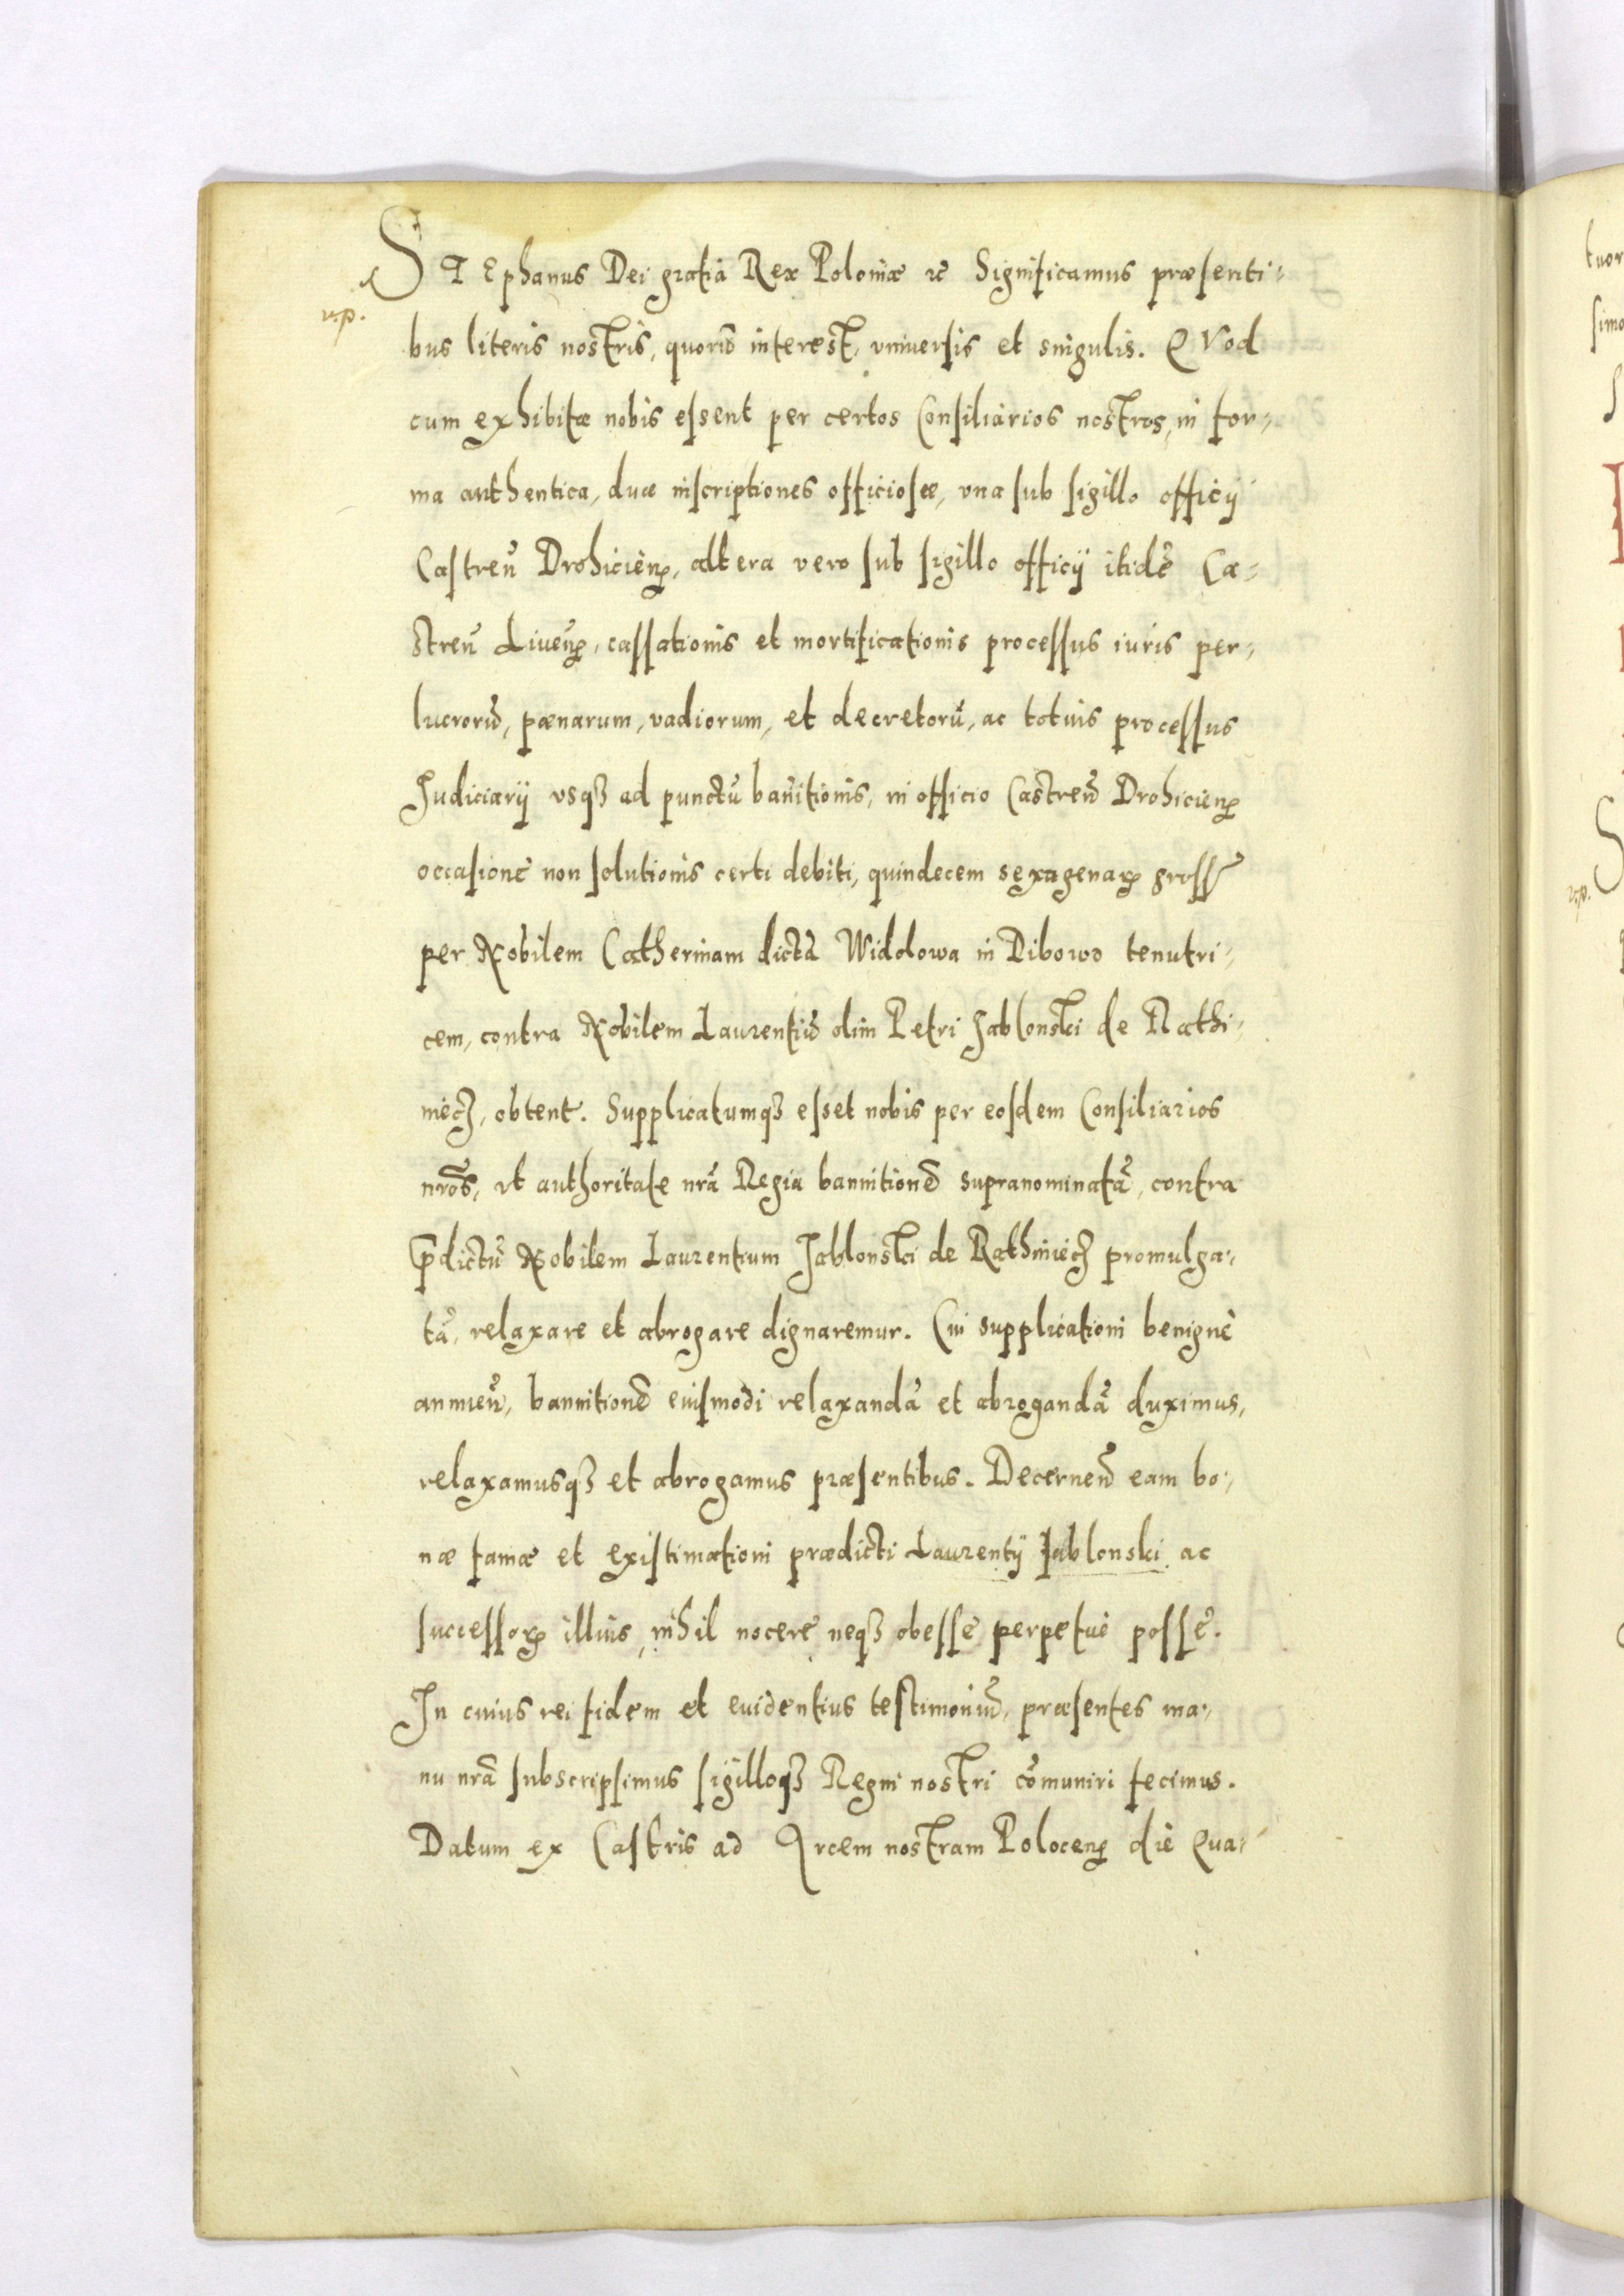 STEphanus Dei gratia Rex Poloniæ ꝛc Significamus præsenti-
v.p.
bus literis nostris, quorũ interest, vniuersis et singulis. QVod
cum exhibitæ nobis essent per certos Consiliarios nostros, in for-
ma authentica, duæ inscriptiones officiosæ, vna sub sigillo officij
Castreñ Drohicieñ, altera vero sub sigillo officij itidẽ Ca-
streñ Liueñ, cassationis et mortificationis processus iuris per-
lucrorũ, pænarum, vadiorum, et decretorũ, ac totius processus
Judiciarij vsqꝫ ad punctũ bañitionis, in officio Castreñ Drohicieñ
occasione non solutionis certi debiti, quindecem sexagenaꝝ gross
per Nobilem Catherinam dictã Widolowa in Dibowo tenutri-
cem, contra Nobilem Laurentiũ olim Petri Jablonski de Rathi-
niecz, obtent. Supplicatumqꝫ esset nobis per eosdem Consiliarios
nrõs, vt authoritate nrã Regia bannitionẽ supranominatã, contra
p̃dictũ Nobilem Laurentium Jablonski de Rathiniecz promulga-
tã, relaxare et abrogare dignaremur. Cui supplicationi benigne
annueñ, bannitionẽ eiusmodi relaxandã et abrogandã duximus,
relaxamusqꝫ et abrogamus præsentibus. Decerneñ eam bo-
næ famæ et existimationi prædicti Laurentij Jablonski ac
successoꝝ illius, nihil nocere neqꝫ obesse perpetue posse.
In cuius rei fidem et euidentius testimoniũ, præsentes ma-
nu nrã subscripsimus sigilloqꝫ Regni nostri cõmuniri fecimus.
Datum ex Castris ad Arcem nostram Poloceñ die Qua-